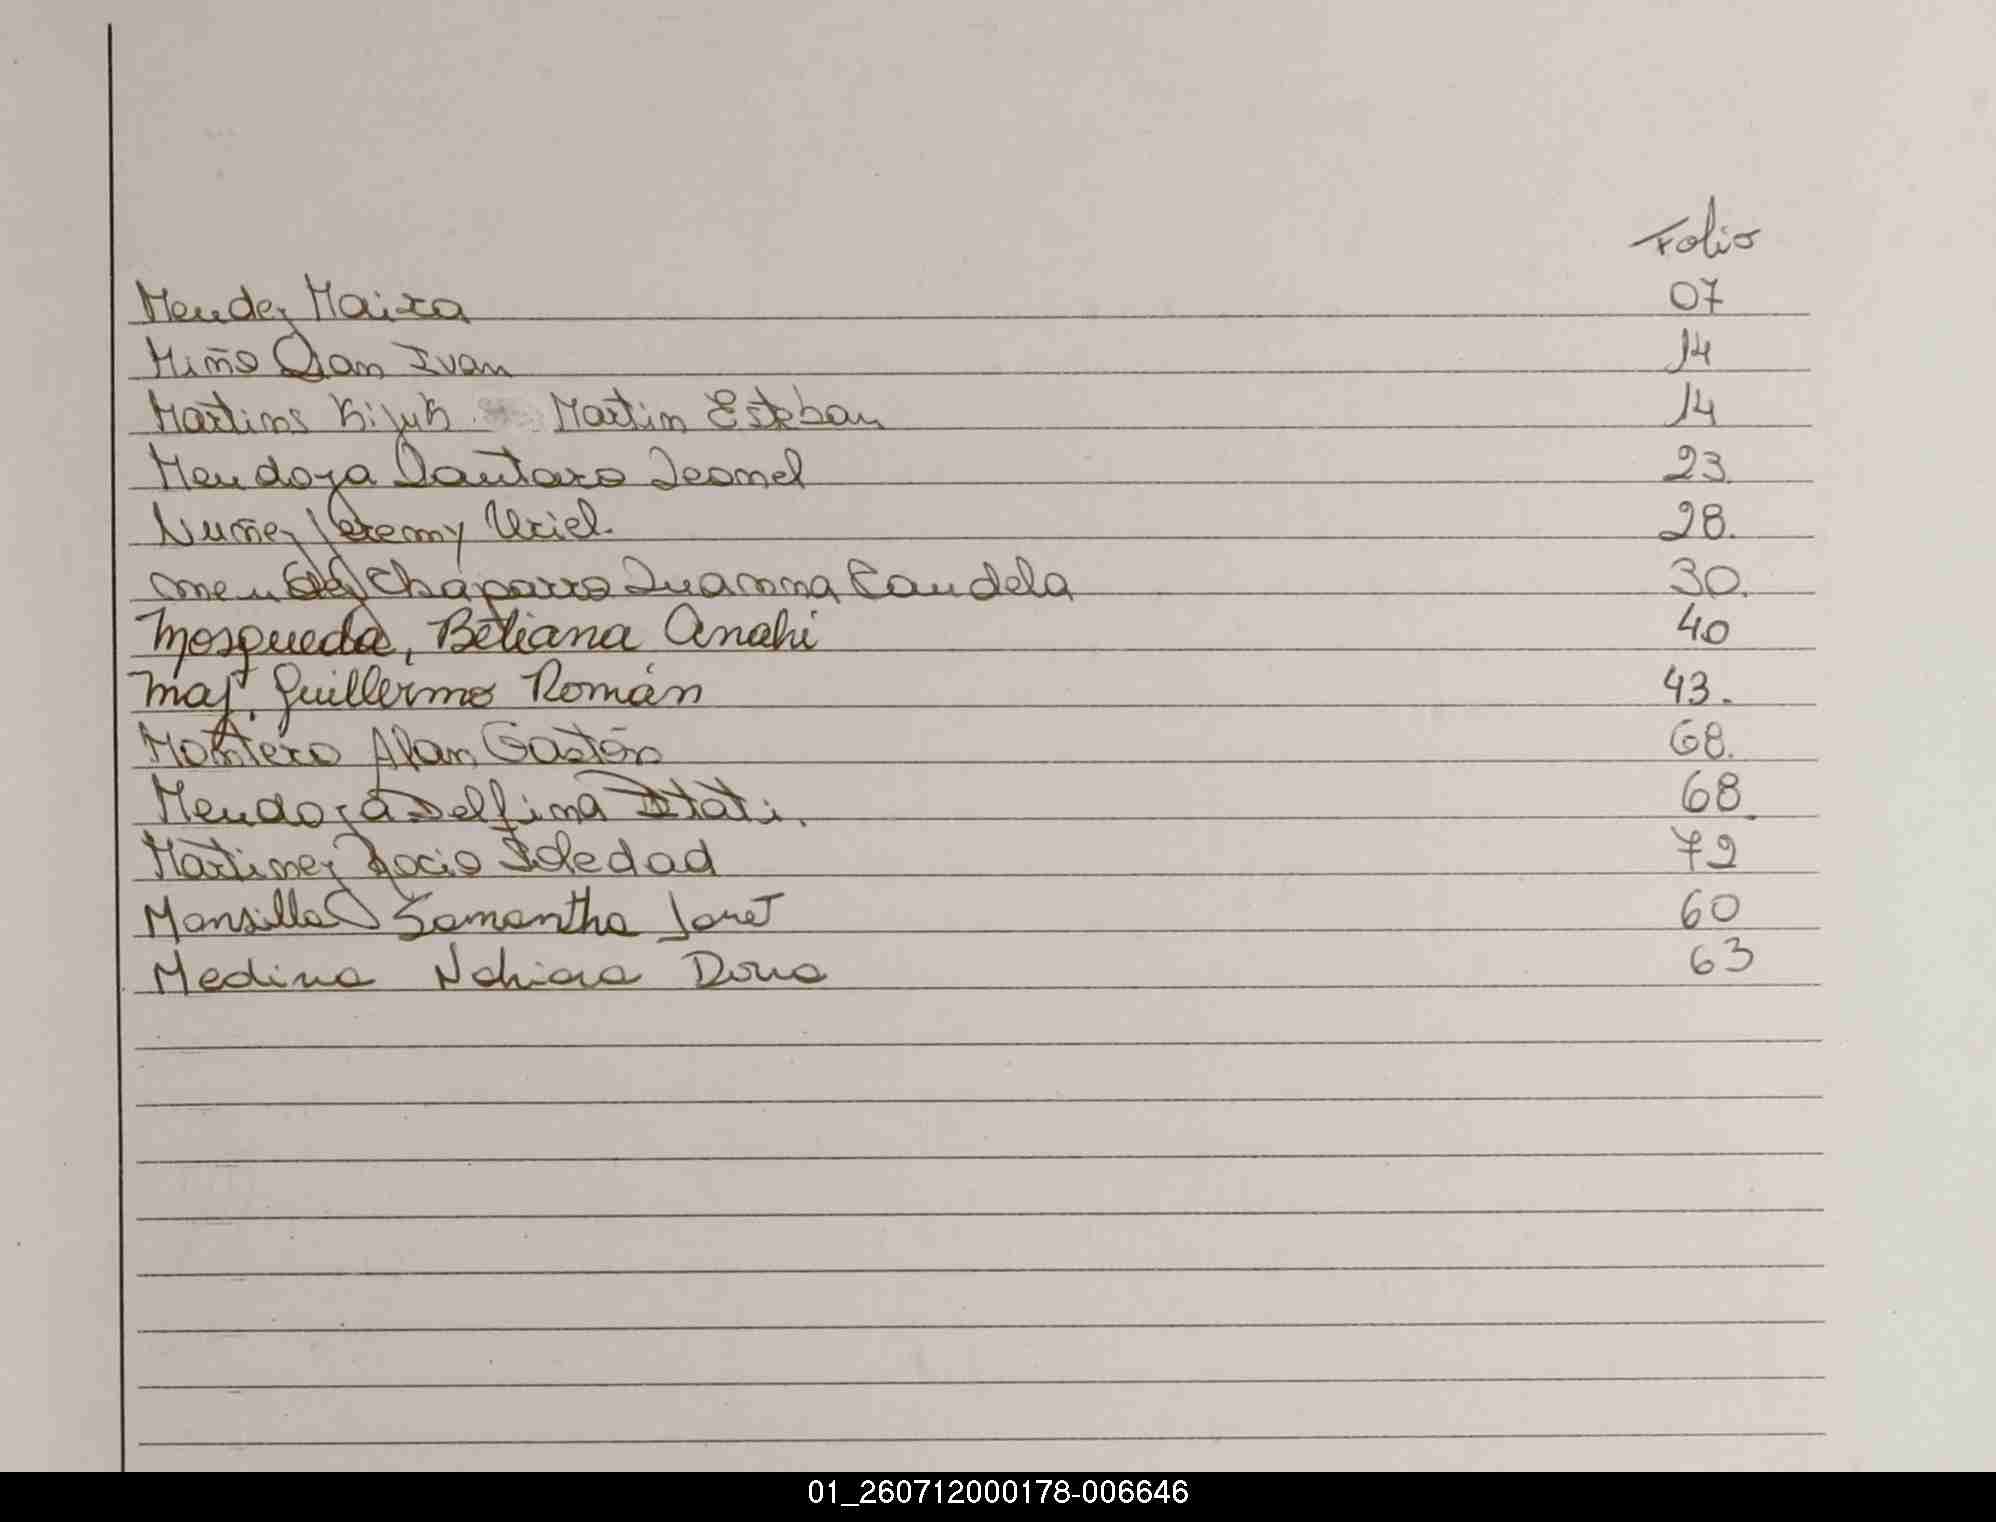 Folio
Mendez Maira 07
Miño Ivan 14
Martins Kijuk Martin Esteban 14
Mendoza Lautaro Leonel 23.
Nuñez Jeremy Uriel. 28.
Chaparro Luanna Candela 30.
Mosqueda, Betiana Anahi 40
Guillermo Román 43.
Montero Alan Gastón 68.
Mendoza Delfina Itati. 68.
Martinez Rocio Soledad 72
Mansilla Samantha Janet 60
Medina 63
01_260712000178-006646